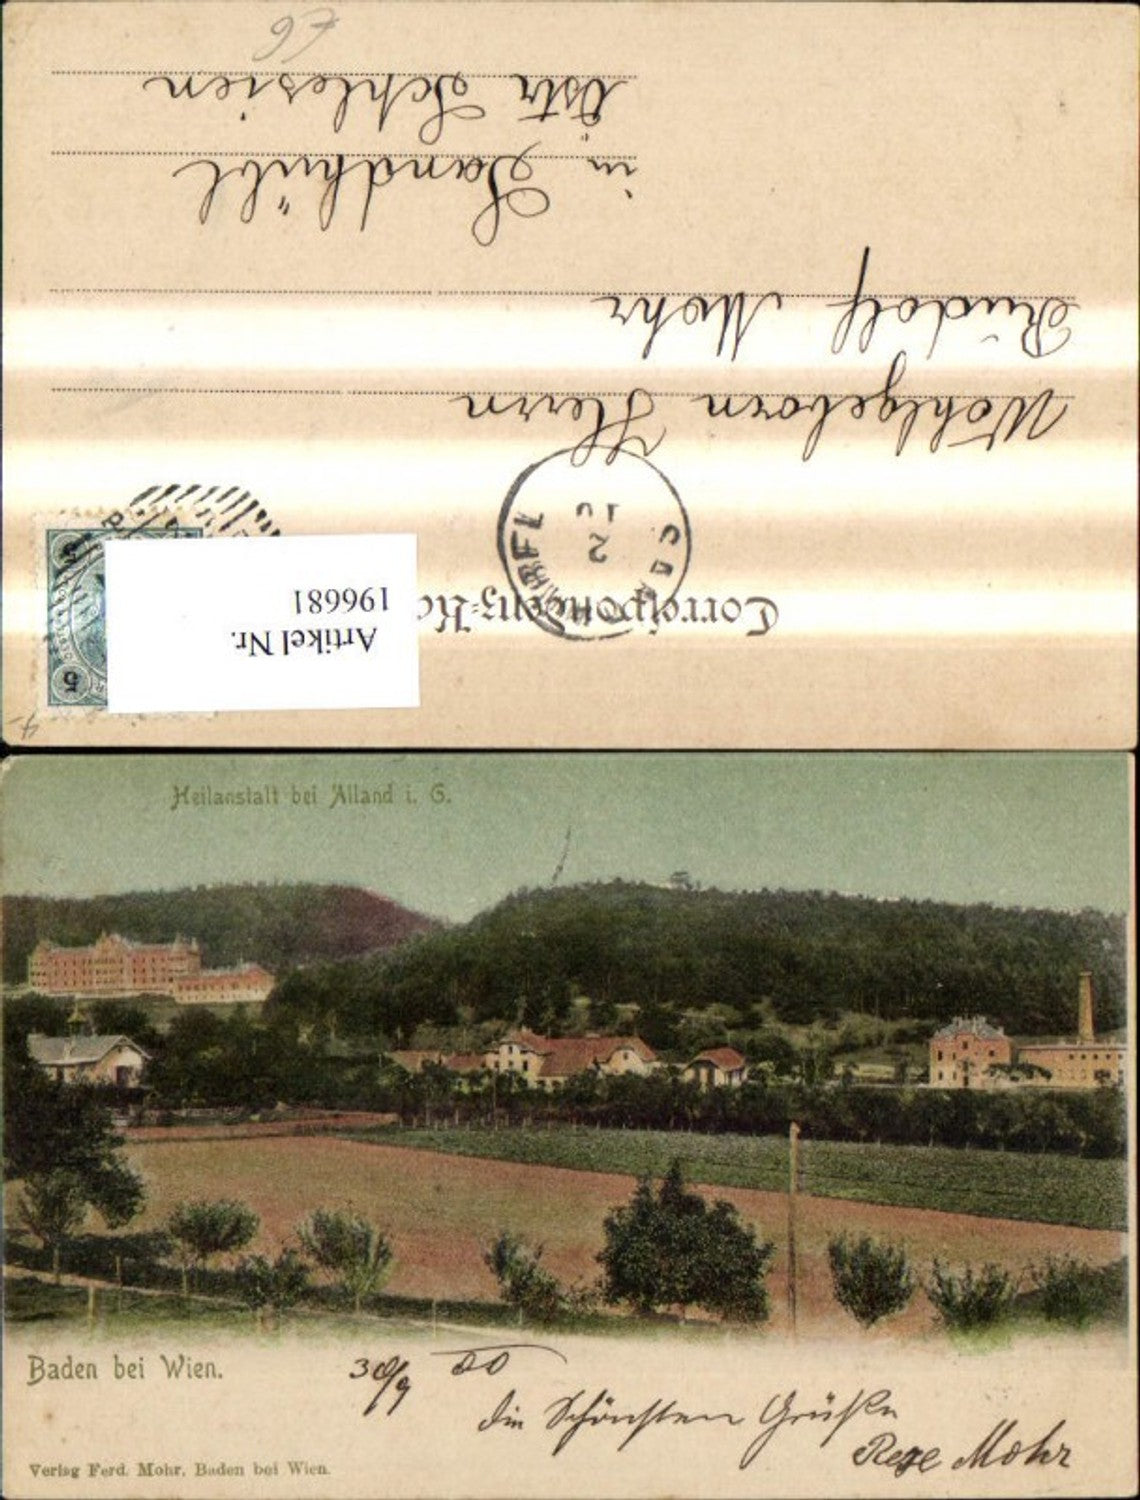 Correspondenz-Ka
Artikel Nr.
196681
5
5
2
10
Wohlgeborn Herrn
Rudolf Mohr
in Sandhübl
Östr Schlesien
F6
4-
Heilanstalt bei Alland i. G.
Baden bei Wien.
30/9 00
die Schönsten Grüße
Mohr
Verlag Ferd. Mohr, Baden bei Wien.